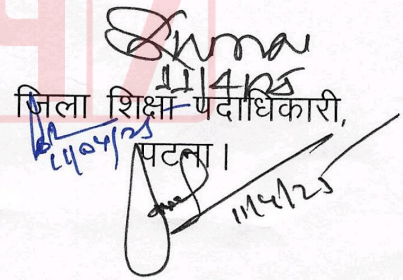 11/4/25
जिला शिक्षा पदाधिकारी,
11/04/25
पटना।
11/4/25